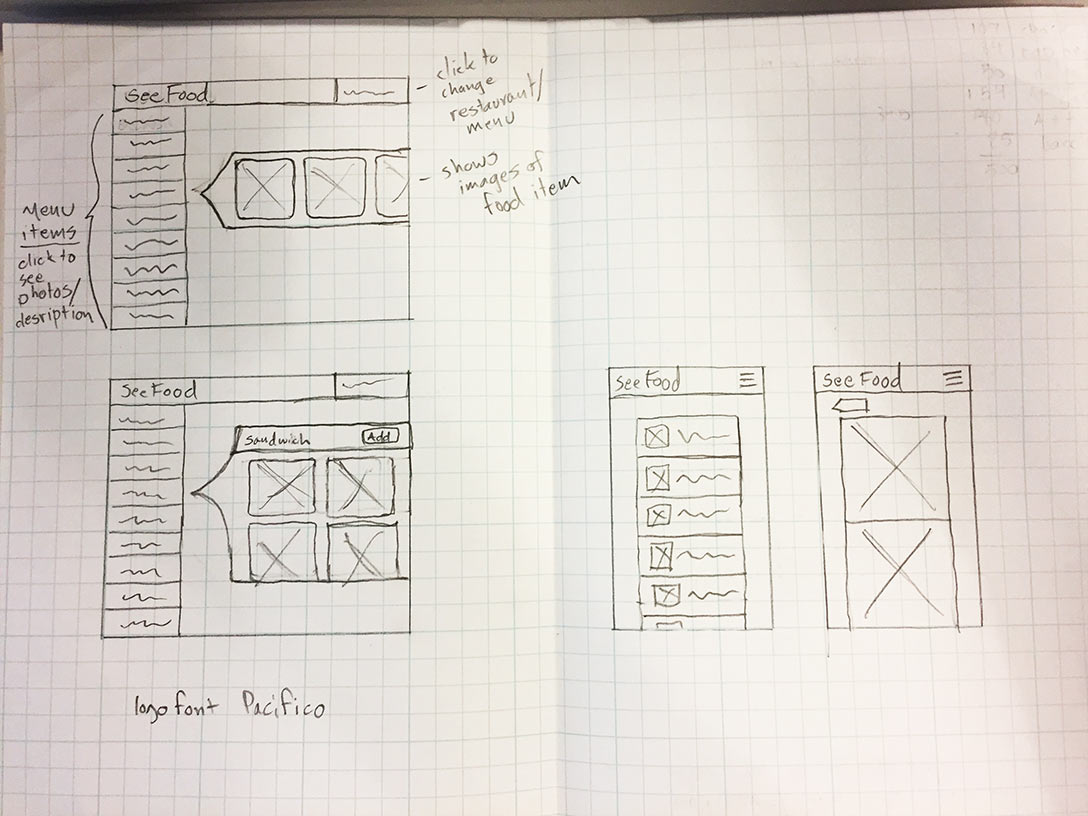 See Food
click to
change
restaurant/
menu
shows
images of
food item
Menu
items
click to
see
photos/
desription
See Food
Sandwich
Add
logo font Pacifico
See Food
See Food